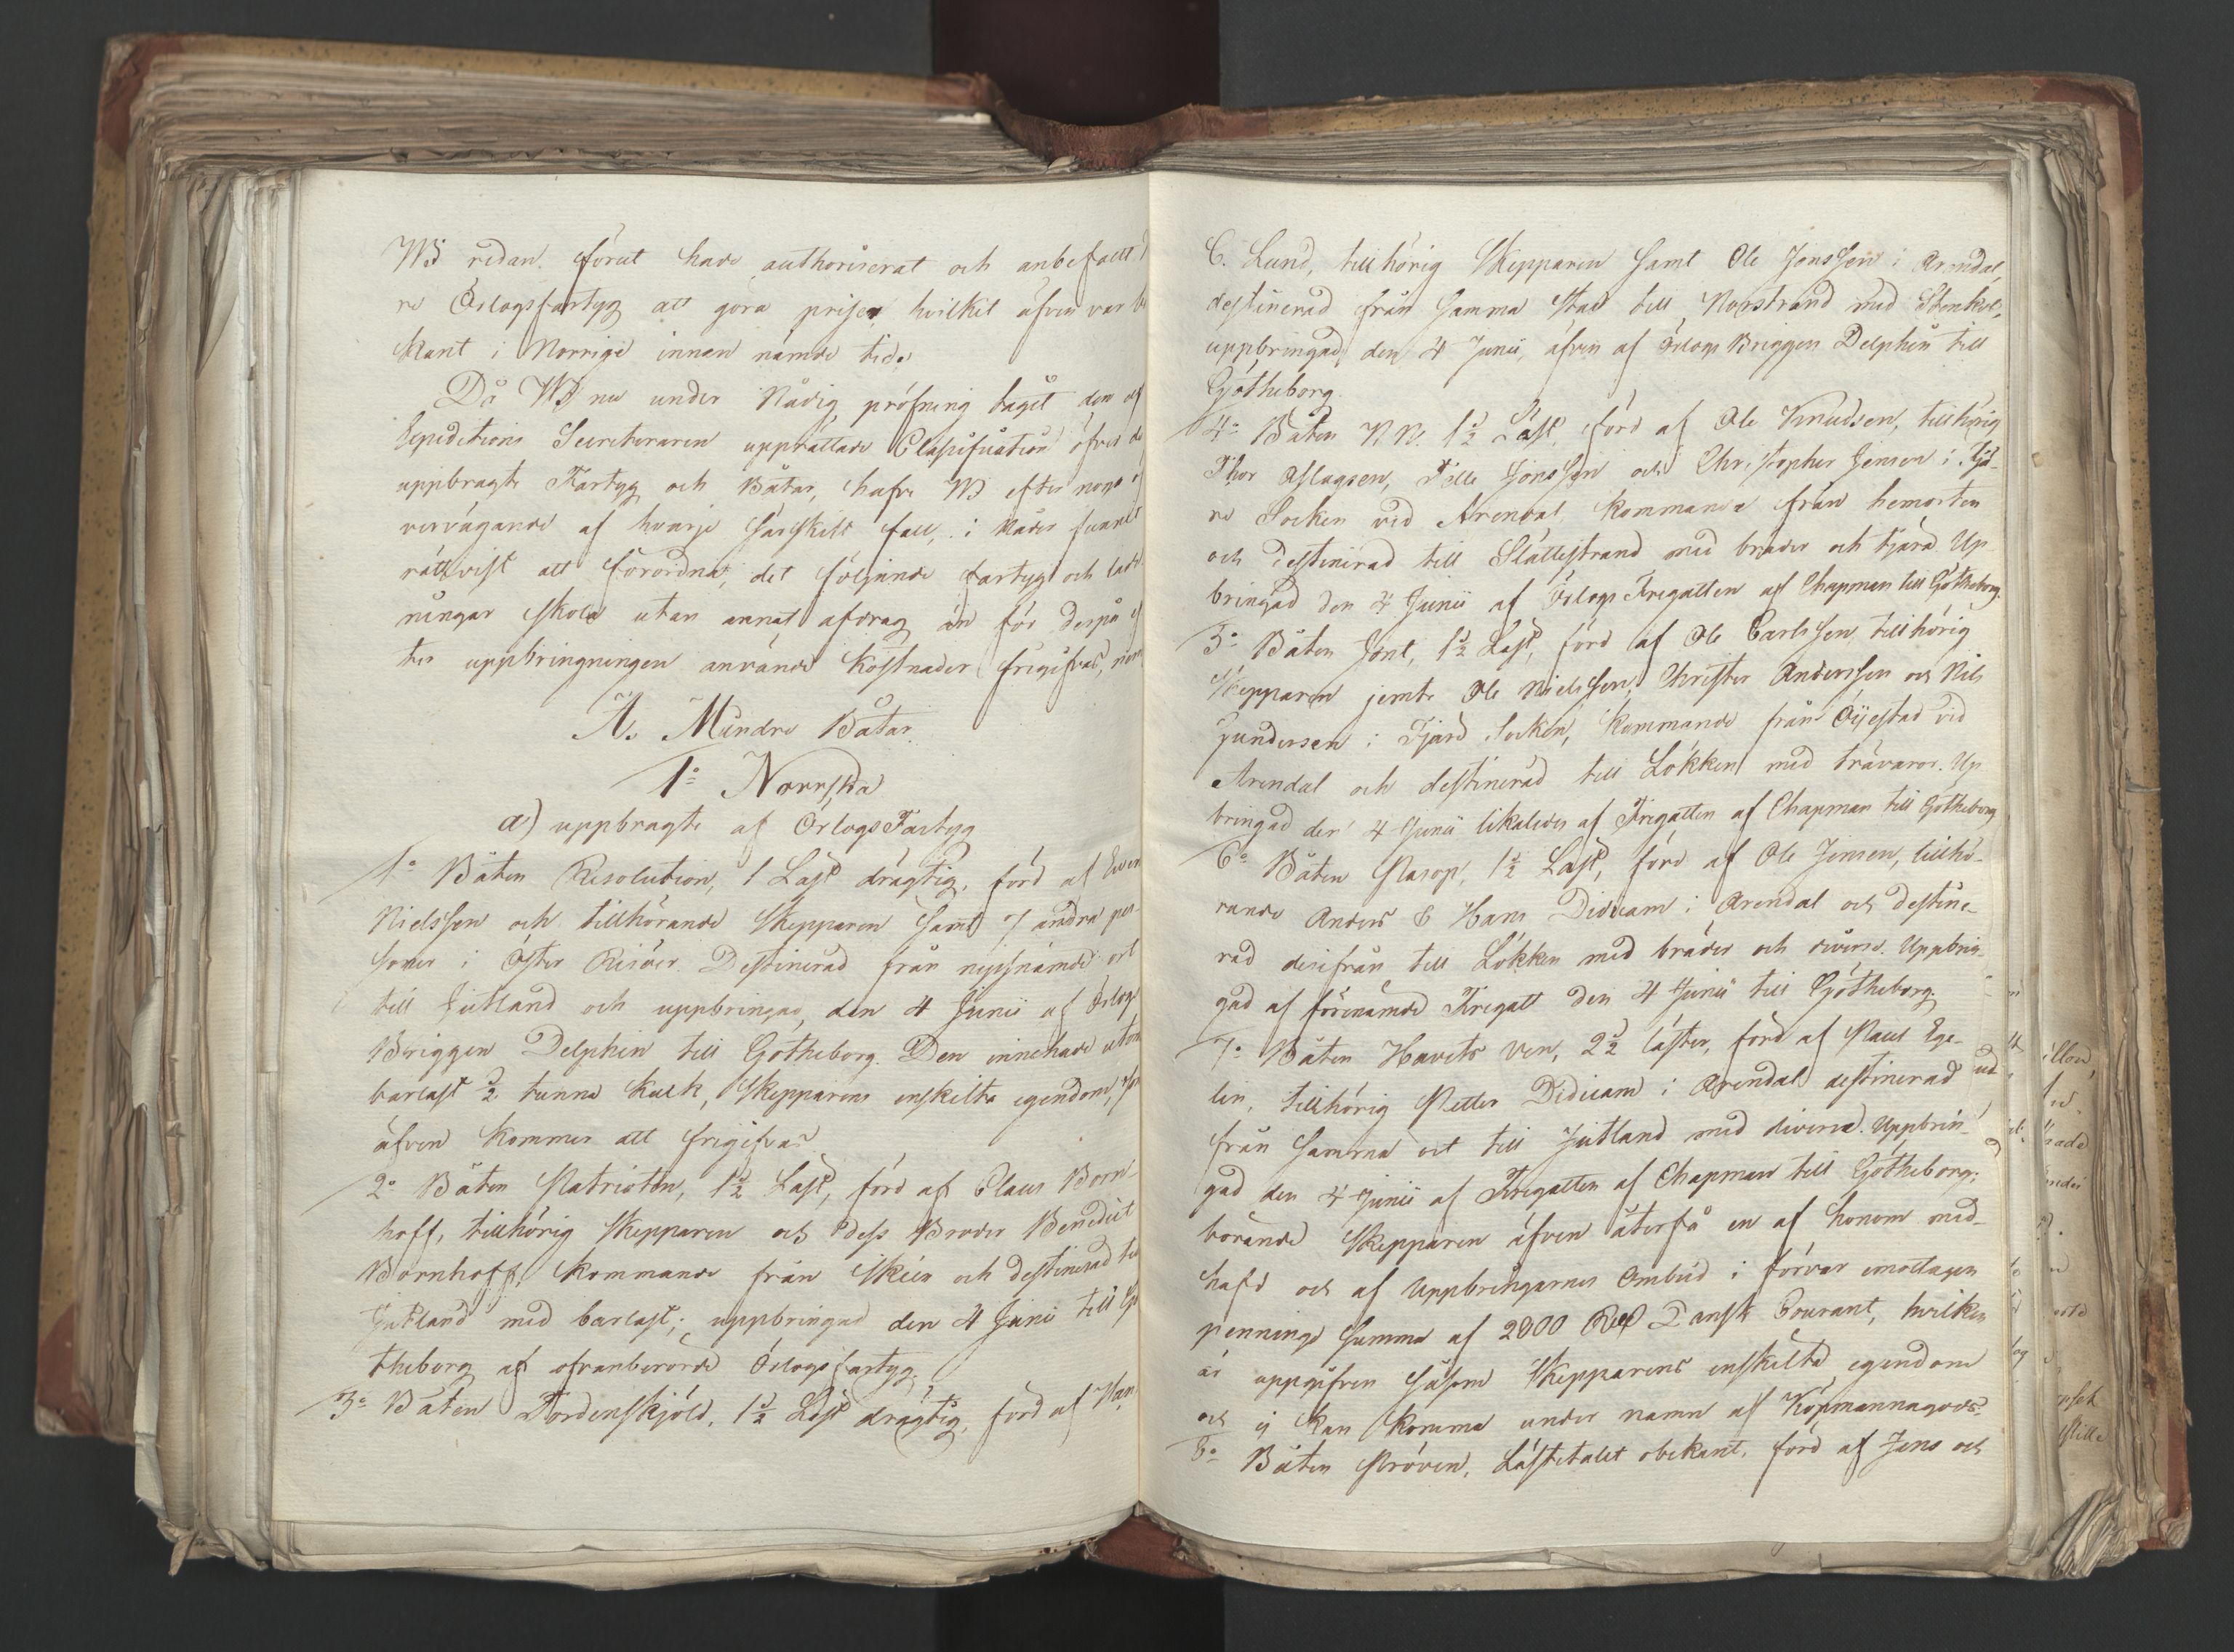 Wi redan förut hade authoriserat och anbefallt
re Örlogsfartyg att göra priser, hvilket äfven var be
kant i Norrige innan nämde tid.
Då Wi nu under Nådig pröfning tagit den af
Expeditions Secreteraren upprättade Classification öfver de
uppbragte Fartyg och Båtar, hafve Wi efter noga ö
vervägande af hvarje särskilt fall, i Nåder funnit
rättvist att förordna, det följande fartyg och ladd
ningar skola utan annat afdrag än för derpå ef
ter uppbringningen använde kostnader frigifvas, nem
A. Mindre Båtar.
1:o Norrska
a) uppbragte af Örlogs Fartyg
1:o Båten Resolution, 1 Läst drägtig, förd af Even
Nielssen och tillhörande Skepparen samt 7 andra per-
soner i Öster Risöer. Destinerad från nyssnämde ort
till Jutland och uppbringad, den 4 Junii af Örlogs
Briggen Delphin till Götheborg. Den innehade utom
barlast ½ tunna kalk, Skepparens enskilta egendom,
äfven kommer att frigifvas.
2:o Båten Patrioten, 1½ Läst, förd af Claus Born-
hoff, tillhörig Skepparen och dess Broder Benedict
Bornhoff, kommande från Skien och destinerad till
Jutland med barlast; uppbringad den 4 Junii till Gö
theborg af ofvanberörde Örlogsfartyg.
3:o Båten Tordenskjöld, 1½ Läst drägtig, förd af Han
C. Lund, tillhörig Skepparen samt Ole Jonssen i Arendal,
destinerad från samma stad till Norstrand med Stenkol,
uppbringad den 4 Junii, äfven af Örlogs Briggen Delphin till
Götheborg.
4:o Båten N.N. 1½ Läst, förd af Ole Knudsen, tillhörig
Thor Aslagsen, Telle Jonssen och Christopher Jensen i Fjä-
re Socken vid Arendal, kommande från hemorten
och destinerad till Slättestrand med bräder och tjära. Up
bringad den 4 Junii af Örlogs Fregatten af Chapman till Götheborg.
5:o Båten Jont, 1½ Läst, förd af Ole Carlssen tillhörig
Skepparen jemte Ole Nielssen, Christer Anderssen och Nils
Gundersen i Fjärd Socken, kommande från Öijestad vid
Arendal och destinerad till Lökken med trävaror. Up
bringad den 4 Junii likaledes af Fregatten af Chapman till Götheborg
6:o Båten Rasop, 1½ Läst, förd af Ole Jensen, tillhö-
rande Anders & Hans Dideicam i Arendal och destine-
rad derifrån till Lökken med bräder och diverse. Uppbrin-
gad af förenämde Fregatt den 4 Junii till Götheborg.
7:o Båten Havets ven, 2½ läster, förd af Paul Ege-
len, tillhörig Petter Dideicam i Arendal destinerad
från samma ort till Jutland med diverse. Uppbrin-
gad den 4 Junii af Fregatten af Chapman till Götheborg;
börande Skepparen äfven återfå en af honom med-
hafd och af Uppbringarnes Ombud i förvar emottagen
penninge Summa af 2000 Rd Dansk Courant, hvilken
är uppgifven såsom Skepparens enskilta egendom
och ej kan komma under namn af Köpmannagods.
8:o Båten Pröven, Lästetalet obekant, förd af Jens och